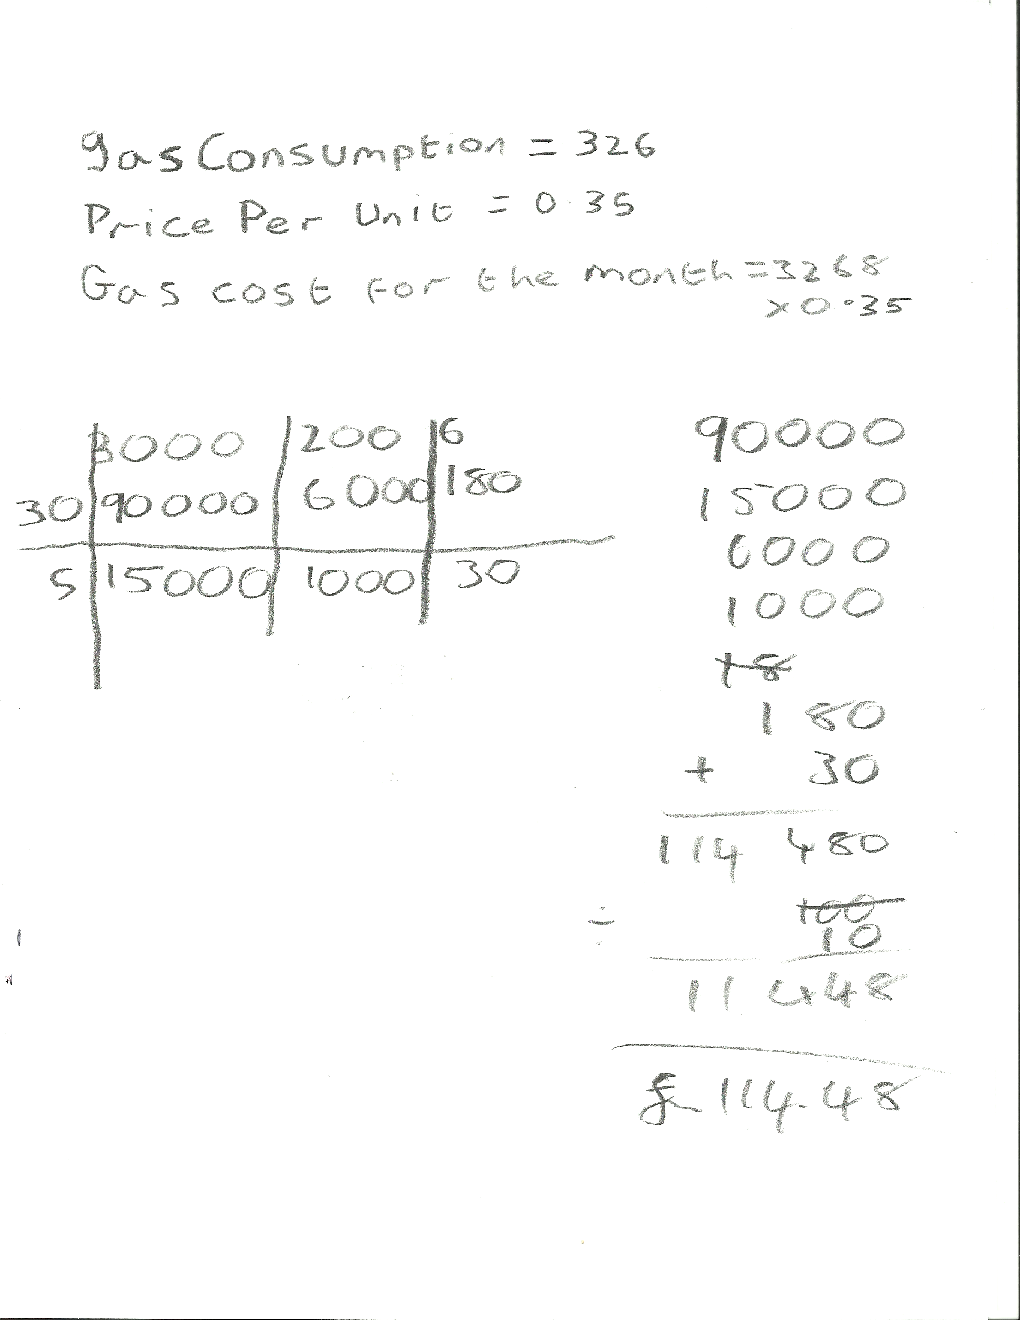 gas Consumption = 326
Price Per Unit = 0.35
Gas cost for the month = 3268
x 0.35
3000 200 6
30 90000 6000 180
5 15000 1000 30
90000
15000
6000
1000
18
180
+ 30
114 480
÷ 100
10
11 448
£ 114.48